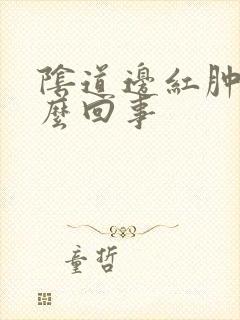 陰道邊紅肿
麽回事
童哲